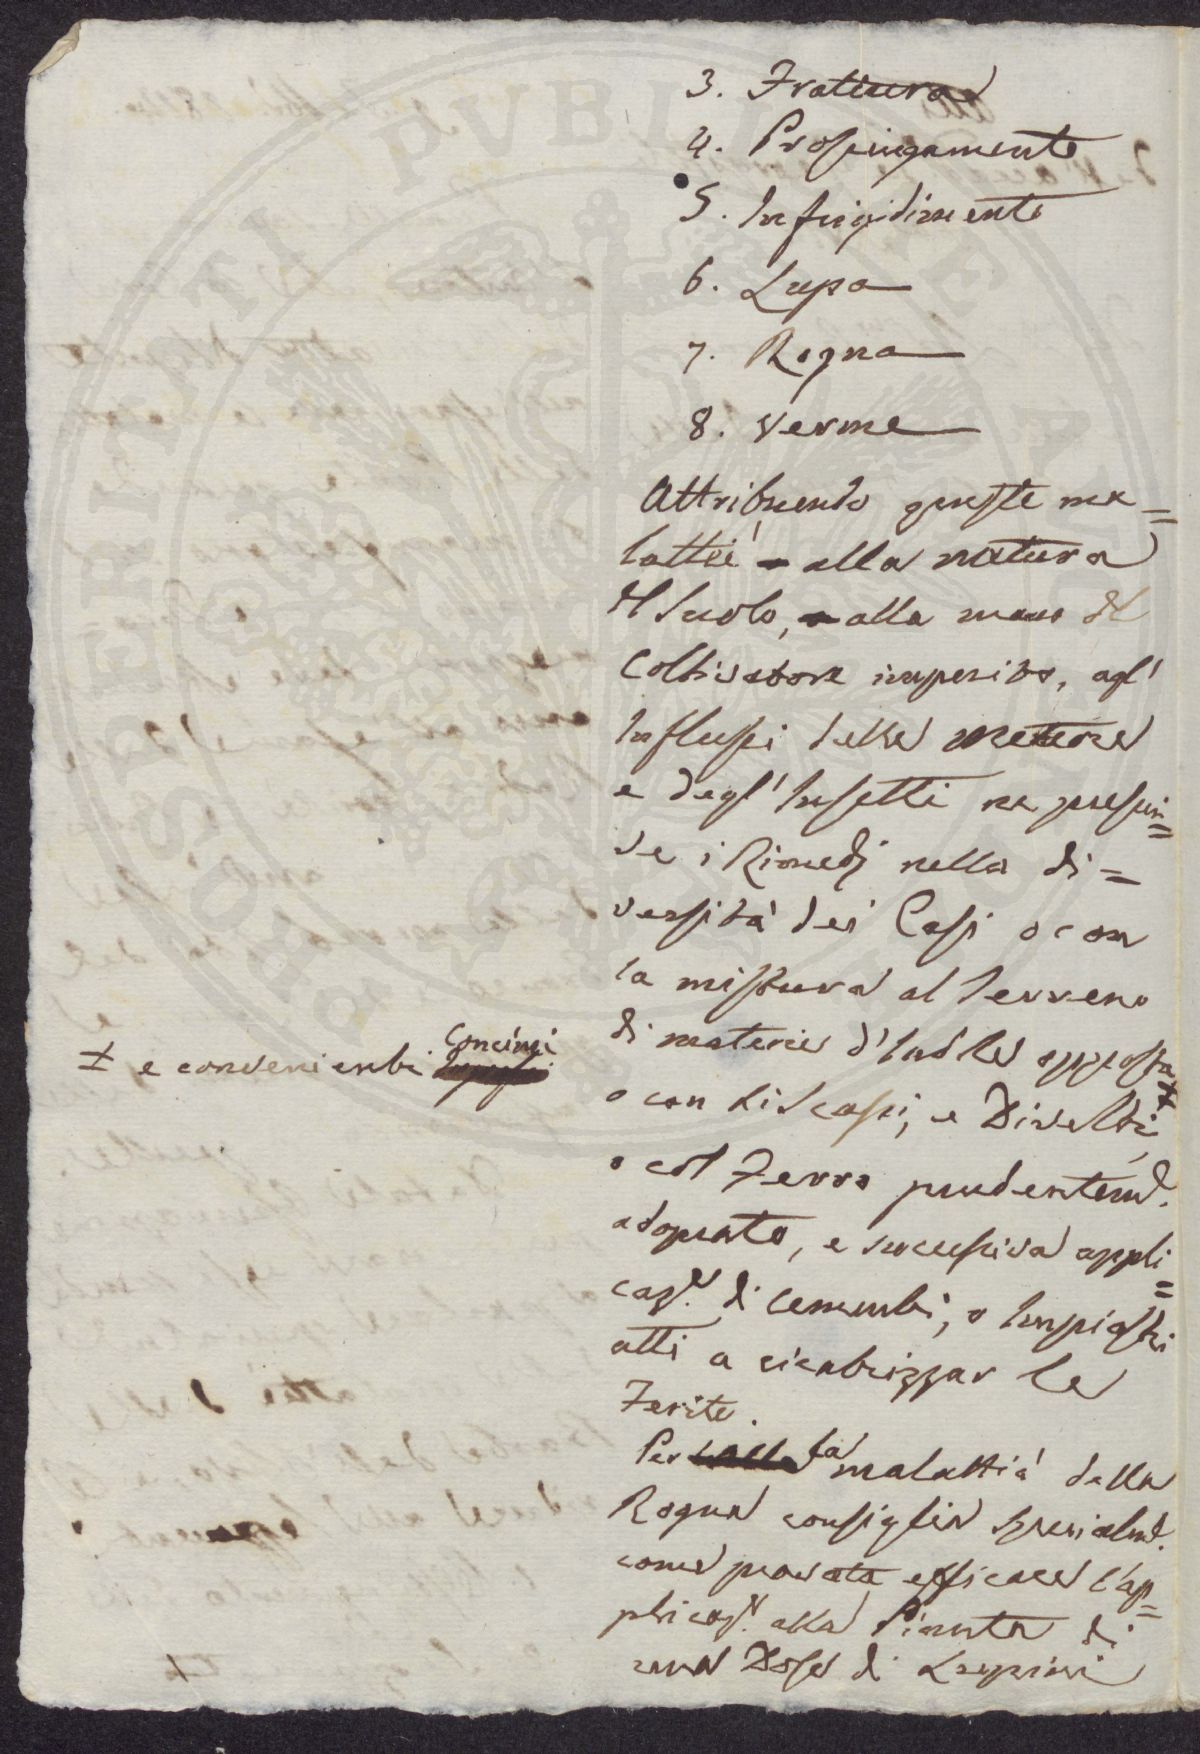 3. Frattura
4. Prosciugamento
5. Infrigidimento
6. Lupa
7. Rogna
8. Verme
Attribuendo queste ma=
lattie alla natura
del Suolo, alla mano del
Coltivatore imperito, agl'
Influssi delle Meteore
e degl'Insetti ne prescri=
ve i Rimedj nella di=
versità dei Casi o con
la mistura al Terreno
di materie d'Indole opposta
o con li Scassi, e Divelti, ±
± e convenienti Concimi
o col Ferro prudentem.e
adoprato, e successiva appli=
caz.e di Cementi, o Impiastri
atti a cicatrizzar le
Ferite.
Per la malattia della
Rogna consiglia specialm.e
come provata efficace l'ap=
plicaz.e alla Pianta di
una Dose di Lupini